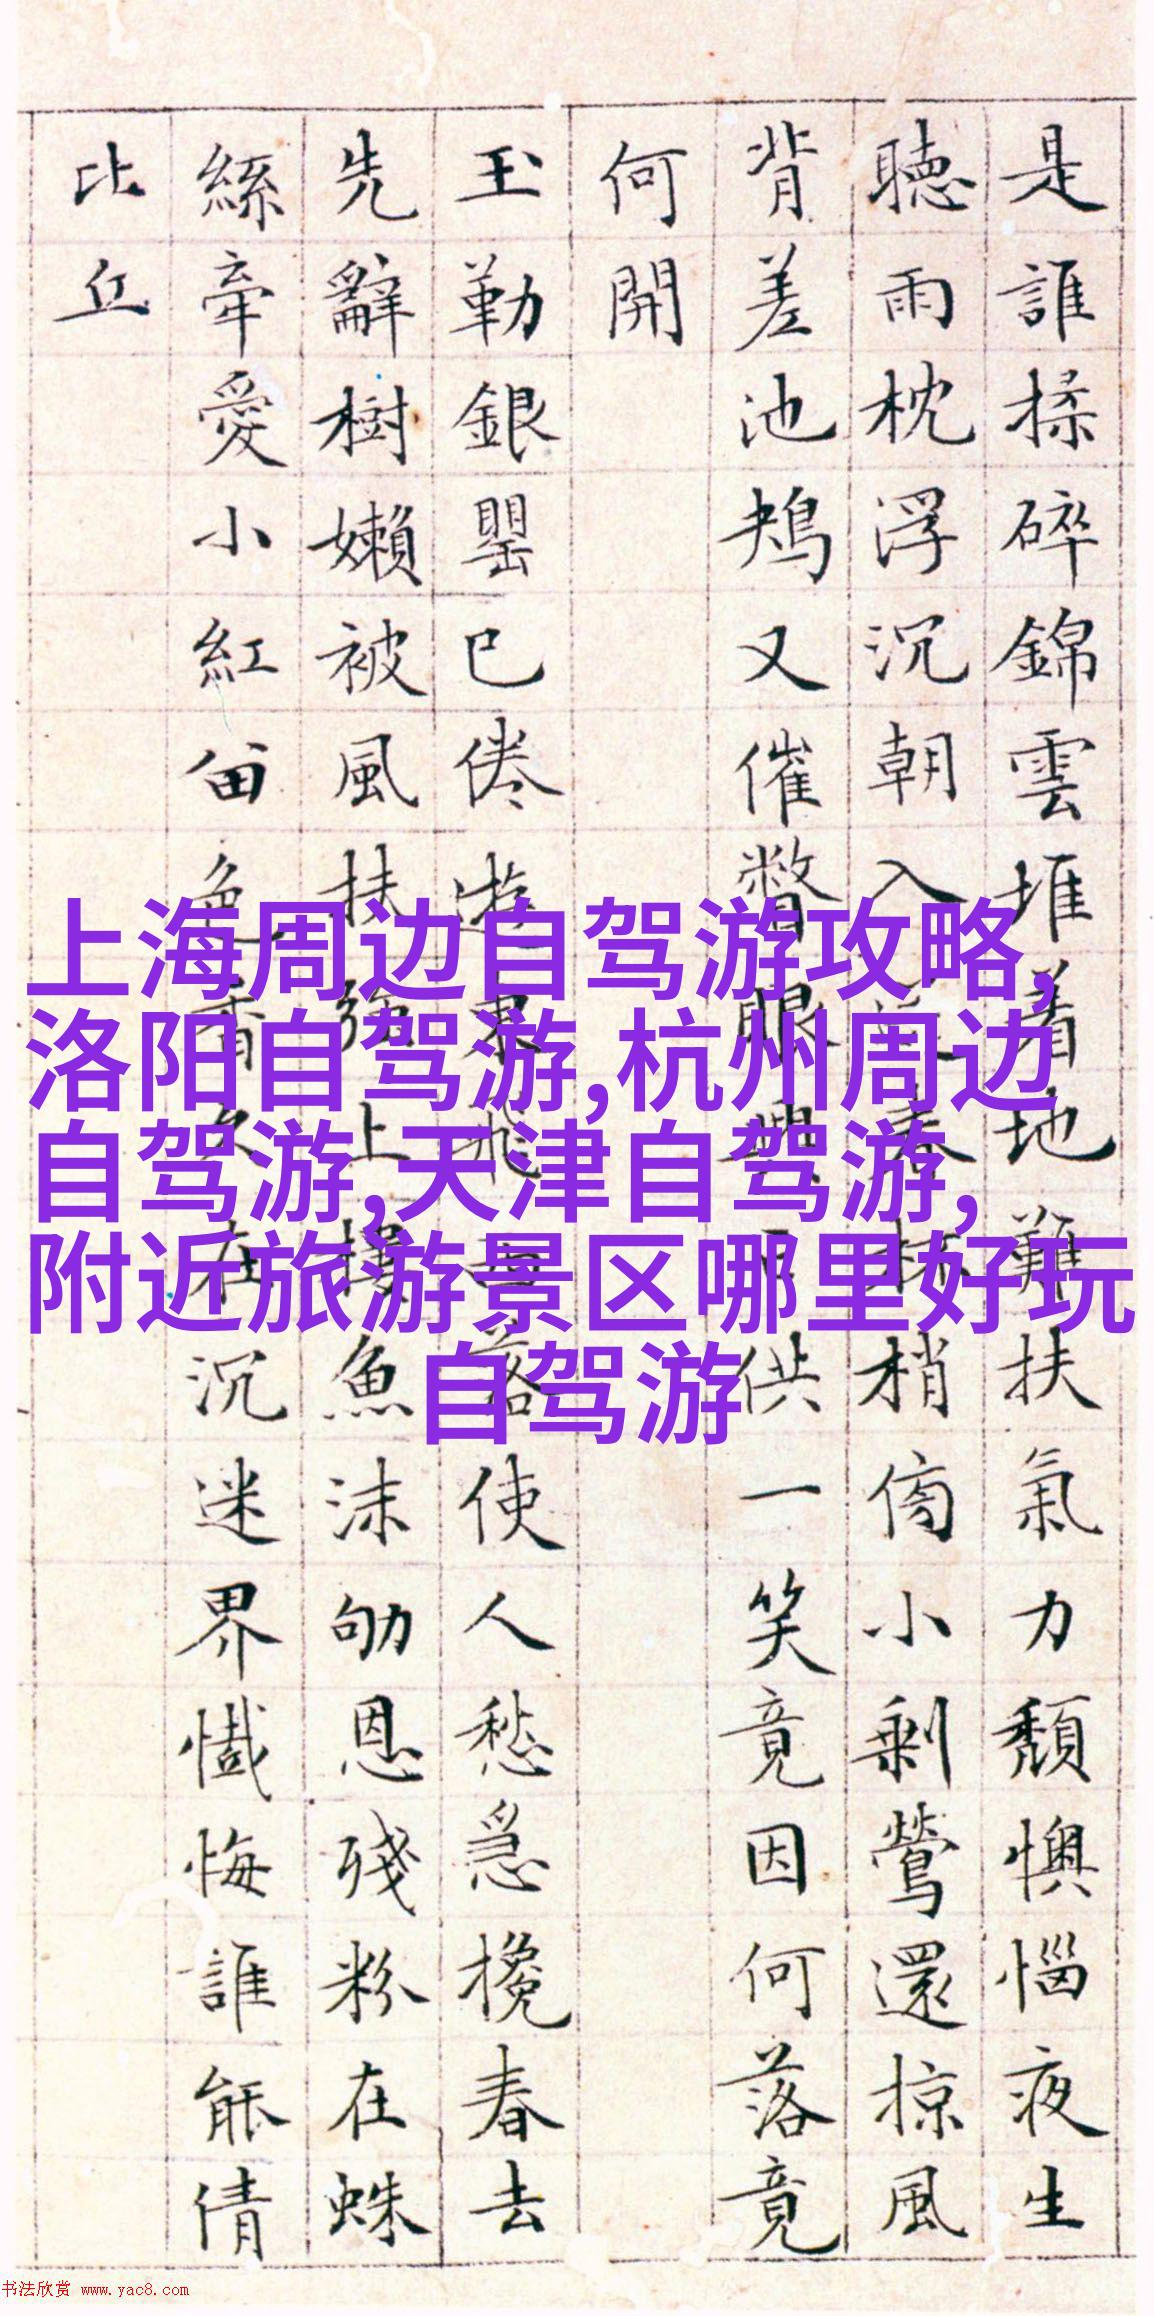 是誰揉碎錦雲堆着地難扶氣力頹懊惱夜生
聽雨枕浮沉朝入春梢小剩鶯還掠風
背差池鴂又催瞥眼興亡供一笑竟因何落竟
何開
玉勒銀罌已倦遊東飛西落使人愁急攙春去
先辭樹嬾被風扶強上樓魚沫劬恩殘粉在蛛
絲牽愛小紅留色香久在沉迷界懺悔誰能倩
比丘
上海周边自驾游攻略,
洛阳自驾游,杭州周边
自驾游,天津自驾游,
附近旅游景区哪里好玩
自驾游
书法欣赏 www.yac8.com